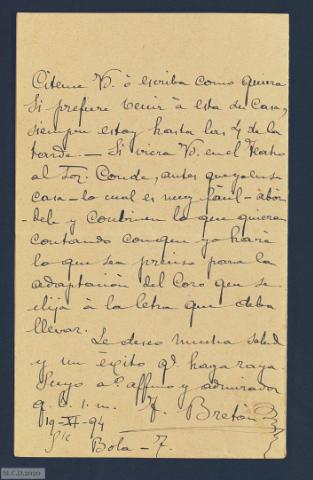 Citeme V. ó escriba como quiera
Si prefiere venir á esta su Casa,
siempre estoy hasta las 4 de la
tarde. — Si viera V. en el Teatro
al Sor. Conde, antes que yo en su
casa — lo cual es muy fácil — abór-
dele y convinen lo que quieran
contando conque yo haré
lo que sea preciso para la
adaptación del Coro que se
elija á la letra que deba
llevar.
Le deseo mucha salud
y un éxito qe. haga raya
Suyo a.º affmo y admirador
q. b. s. m. T. Bretón
19-XI-94
S/c Bola - 7.
M.C.D. 2020